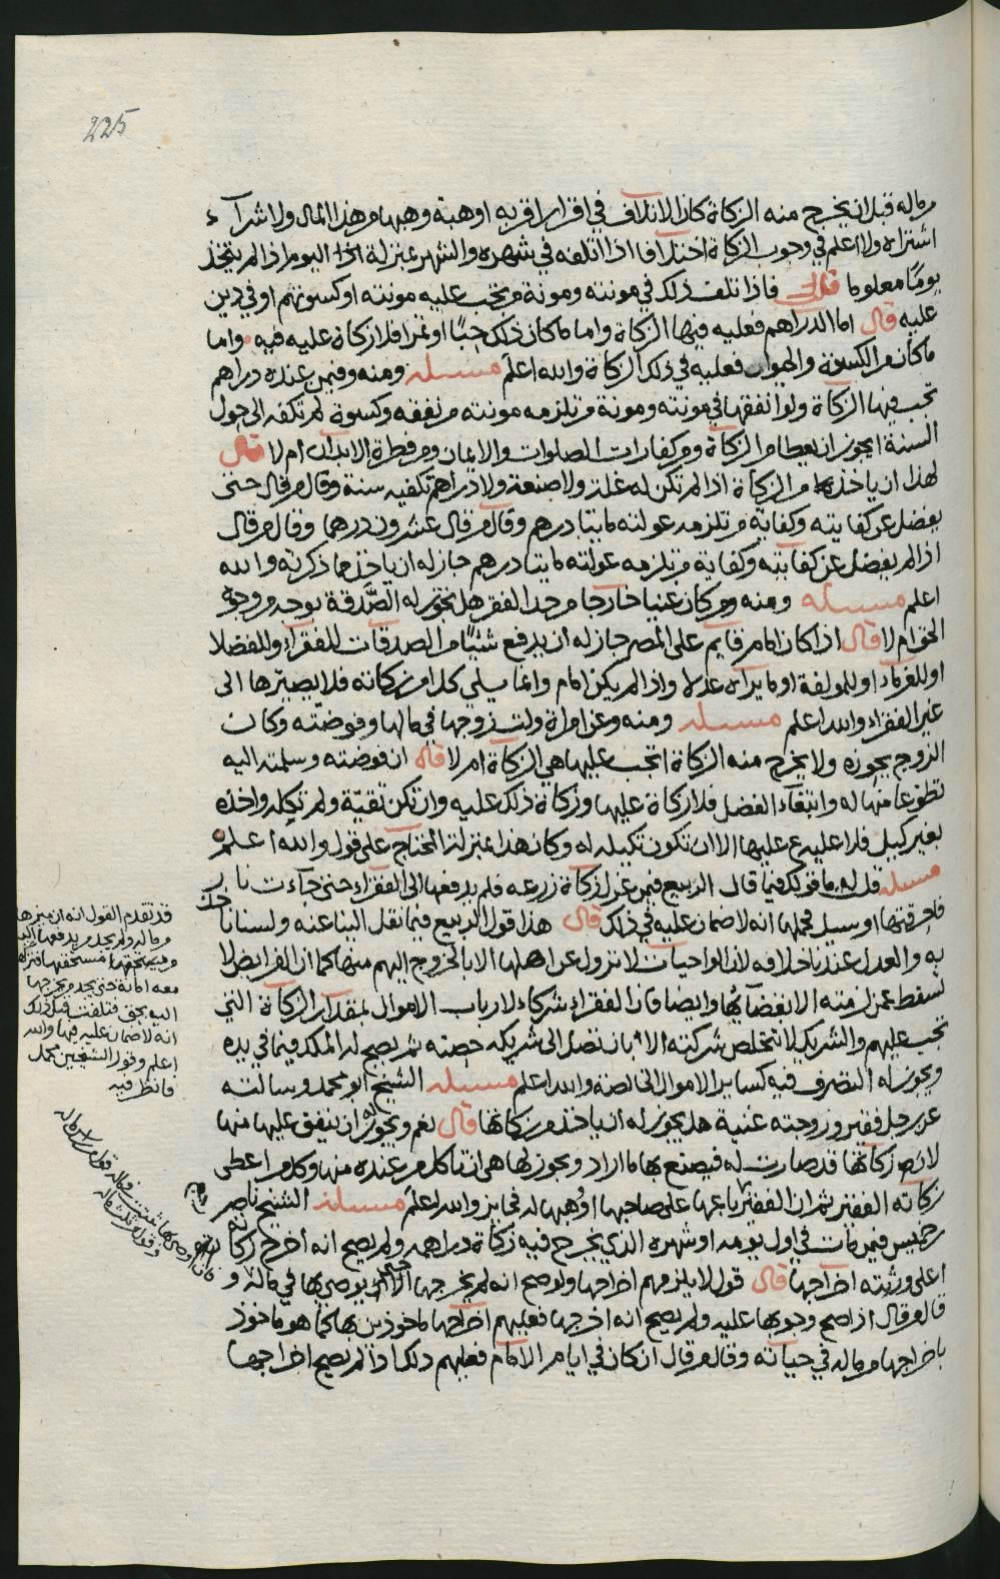 225
من ماله قبل ان يخرج منه الزكاة كان الاتلاف في اقرار اقر به او هبة وهبها من هذا المال ولا شراء
اشتراه ولا اعلم في وجوب الزكاة اختلافا اذا اتلفه في شهره والشهر بمنزلة اليوم اذا لم يتخذ
يوما معلوما قال فاذا تلف ذلك في مونته ومونة من يجب عليه مونته او كسوتهم او في دين
عليه قال اما الدراهم فعليه فيها الزكاة واما ما كان ذلك حبا او تمرا فلا زكاة عليه فيه واما
ما كان من الكسوة والحيوان فعليه في ذلك الزكاة والله اعلم مسئلة ومنه وفيمن عنده دراهم
تجب فيها الزكاة ولو انفقها في مونته ومونة من تلزمه مونته من نفقه وكسوة لم تكفه الى حول
السنة ايجوز ان يعطا من الزكاة ومن كفارات الصلوات والايمان ومن فطرة الابدان ام لا قال
لهذا ان ياخذ من الزكاة اذا لم تكن له غلة ولا صنعة ولا دراهم تكفيه سنة وقال من قال حتى
يفضل عن كفايته وكفاية من تلزمه عولته مايتا درهم وقال من قال عشرون درهما وقال من قال
اذا لم يفضل عن كفايته وكفاية من يلزمه عولته مايتا درهم جاز له ان ياخذ مما ذكرته والله
اعلم مسئلة ومنه ومن كان غنيا خارجا من حد الفقر هل تجوز له الصدقة بوجه من وجوه
الحق ام لا قال اذا كان امام قايم على المصر جاز له ان يدفع شيئا من الصدقات للفقراء وللفضلا
او للغرماء او للمولفة او ما يراه عدلا واذا لم يكن امام وانما يلي كل امر زكاته فلا يصيرها الى
غير الفقراء والله اعلم مسئلة ومنه وعن امراة ولت زوجها في مالها وفوضته وكان
الزوج يحوزه ولا يخرج منه الزكاة اتجب عليها هي الزكاة ام لا قال ان فوضته وسلمته اليه
تطوعا منها له وابتغاء الفضل فلا زكاة عليها وزكاة ذلك عليه وان تكن تقية ولم تكله واخذه
بغير كيل فلا عليه ع عليها الا ان تكون تكيله له وكان هذا بمنزلة المحتاج على قول والله اعلم
مسئلة قلت له ما تقولك فيما قال الربيع فيمن عزل زكاة زرعه فلم يدفعها الى الفقراء حتى جاءت نار
فاحرقتها او سيل فحملها انه لا ضمان عليه في ذلك قال هذا قول الربيع فيما نقل الينا عنه ولسنا ناخذ
به والعدل عندنا خلافه لان الواجبات لا تزول عن اهلها الا بالخروج اليهم منها كما ان الفرايض لا
تسقط عمن لزمته الا بقضائها وايضا فان الفقراء شركاء لارباب الاموال بمقدار الزكاة التي
تجب عليهم والشريك لا تتخلص شركته الا بان تصل الى شريكه حصته ثم يصح له الملك فيما في يده
ويجوز له التصرف فيه كساير الاموال الخالصة والله اعلم مسئلة الشيخ ابو محمد وسالته
عن رجل فقير وزوجته غنية هل يجوز له ان ياخذ من زكاتها قال نعم ويجوز له ان ينفق عليها منها
لان زكاتها قد صارت له فيصنع بها ما اراد ويجوز لها هي ان تاكل من عنده منها وكل من اعطى
زكاته الفقير ثم ان الفقير باعها على صاحبها او وهبها له فجايز والله اعلم مسئلة الشيخ ناصر بن
خميس فيمن مات في اول يومه او شهره الذي يخرج فيه زكاة دراهمه ولم يصح انه اخرج زكاته
اعلى ورثته اخراجها قال قول لا يلزمهم اخراجها ولو صح انه لم يخرجها حتى يوصي بها في ماله و
قال من قال اذا صح وجوبها عليه ولم يصح انه اخرجها فعليهم اخراجها ماخوذين بها كما هو ماخوذ
باخراجها من ماله في حياته وقال من قال ان كان في ايام الامام فعليهم ذلك اذا لم يصح اخراجها
قد تقدم القول انه ان ميزها
من ماله ولم يجد من يدفعها اليه
معه امانة حتى يجد من يخرجها
اليه بحق فتلفت قبل ذلك
انه لا ضمان عليه فيها والله
اعلم وقول الشيخين محمل
فانظر فيه